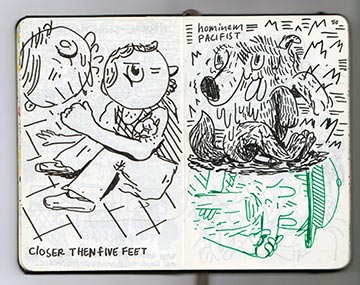 CLOSER THEN FIVE FEET
hominem
PACIFIST